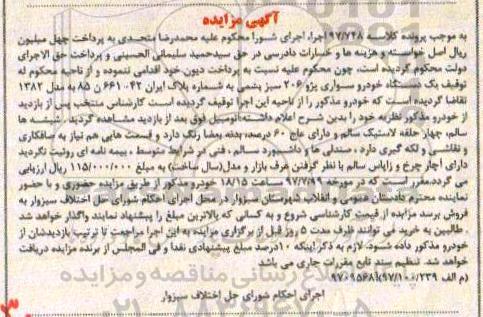 آگهی مزایده
به موجب پرونده کلاسه ۹۷/۷۴۸ اجرا، اجرای شورا محکوم علیه محمدرضا متحدی به پرداخت چهل میلیون
ریال اصل خواسته و هزینه ها و خسارات دادرسی در حق سیدحمید سلیمانی الحسینی و پرداخت حق الاجرای
دولت محکوم گردیده است، چون محکوم علیه نسبت به پرداخت دیون خود اقدامی ننموده و از ناحیه محکوم له
توقیف یک دستگاه خودرو سواری پژو ۲۰۰ سبز یشمی به شماره پلاک ایران ۴۲-۶۶۱ ن ۸۵ به مدل ۱۳۸۲
تقاضا گردیده است که خودرو مذکور را از ناحیه این اجرا توقیف گردیده است کارشناس منتخب پس از بازدید
از خودرو مذکور نظریه خود را بدین شرح اعلام داشته‌اتومبیل فوق بعد از بازدید مشاهده گردید، شیشه ها
سالم، چهار حلقه لاستیک سالم و دارای عاج ۶۰ درصد، بدنه بعضا رنگ دارد و قسمت هایی هم نیاز به صافکاری
و نقاشی و لکه گیری دارد ، صندلی ها و داشبورد سالم ، فنی در شرایط متوسط ، بیمه نامه ای روئیت نگردید
دارای آچار چرخ و زاپاس سالم با نظر گرفتن عرف بازار و مدل(سال ساخت) به مبلغ ۱۱۵/۰۰۰/۰۰۰ ریال ارزیابی
می گردد.مقرر است که در مورخه ۹۷/۷/۲۹ ساعت ۱۸/۱۵ خودرو مذکور از طریق مزایده حضوری و با حضور
نماینده محترم دادستان عمومی و انقلاب شهرستان سبزوار در محل اجرای احکام شورای حل اختلاف سبزوار به
فروش برسد مزایده از قیمت کارشناسی شروع و به کسانی که بالاترین مبلغ را پیشنهاد نمایند واگذار خواهد شد
، طالبین به خرید می توانند ظرف مدت ۵ روز قبل از برگزاری مزایده به این اجرا مراجعت تا ترتیب بازدیدشان از
خودرو مذکور داده شود. لازم به ذکر اینکه ۱۰درصد مبلغ پیشنهادی نقدا و فی المجلس از برنده مزایده دریافت
خواهد شد. تنظیم سند تابع مقررات جاری می باشد
(م الف ۹۷/۱۰۰/۲۳۹)۹۷۰۹۵۶۸
اجرای احکام شورای حل اختلاف سبزوار